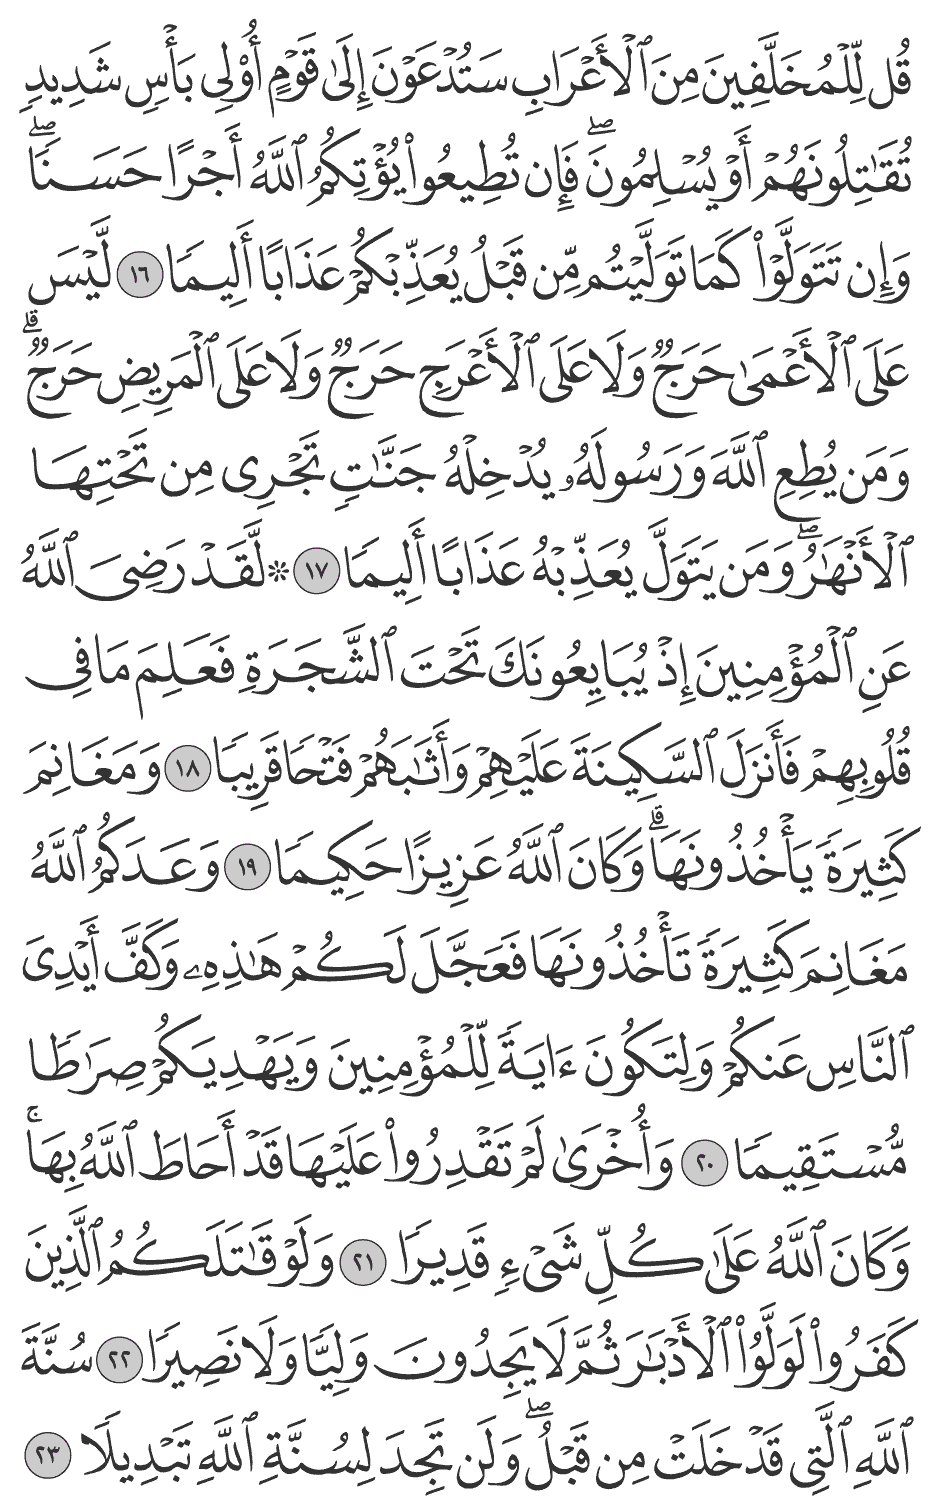 قُل لِّلْمُخَلَّفِينَ مِنَ ٱلْأَعْرَابِ سَتُدْعَوْنَ إِلَىٰ قَوْمٍ أُوْلِى بَأْسٍ شَدِيدٍ
تُقَٰتِلُونَهُمْ أَوْ يُسْلِمُونَ ۖ فَإِن تُطِيعُوا۟ يُؤْتِكُمُ ٱللَّهُ أَجْرًا حَسَنًا ۖ
وَإِن تَتَوَلَّوْا۟ كَمَا تَوَلَّيْتُم مِّن قَبْلُ يُعَذِّبْكُمْ عَذَابًا أَلِيمًا ١٦ لَّيْسَ
عَلَى ٱلْأَعْمَىٰ حَرَجٌ وَلَا عَلَى ٱلْأَعْرَجِ حَرَجٌ وَلَا عَلَى ٱلْمَرِيضِ حَرَجٌ ۗ
وَمَن يُطِعِ ٱللَّهَ وَرَسُولَهُۥ يُدْخِلْهُ جَنَّٰتٍ تَجْرِى مِن تَحْتِهَا
ٱلْأَنْهَٰرُ ۖ وَمَن يَتَوَلَّ يُعَذِّبْهُ عَذَابًا أَلِيمًا ١٧ ۞ لَّقَدْ رَضِىَ ٱللَّهُ
عَنِ ٱلْمُؤْمِنِينَ إِذْ يُبَايِعُونَكَ تَحْتَ ٱلشَّجَرَةِ فَعَلِمَ مَا فِى
قُلُوبِهِمْ فَأَنزَلَ ٱلسَّكِينَةَ عَلَيْهِمْ وَأَثَٰبَهُمْ فَتْحًا قَرِيبًا ١٨ وَمَغَانِمَ
كَثِيرَةً يَأْخُذُونَهَا ۗ وَكَانَ ٱللَّهُ عَزِيزًا حَكِيمًا ١٩ وَعَدَكُمُ ٱللَّهُ
مَغَانِمَ كَثِيرَةً تَأْخُذُونَهَا فَعَجَّلَ لَكُمْ هَٰذِهِۦ وَكَفَّ أَيْدِىَ
ٱلنَّاسِ عَنكُمْ وَلِتَكُونَ ءَايَةً لِّلْمُؤْمِنِينَ وَيَهْدِيَكُمْ صِرَٰطًا
مُّسْتَقِيمًا ٢٠ وَأُخْرَىٰ لَمْ تَقْدِرُوا۟ عَلَيْهَا قَدْ أَحَاطَ ٱللَّهُ بِهَا ۚ
وَكَانَ ٱللَّهُ عَلَىٰ كُلِّ شَىْءٍ قَدِيرًا ٢١ وَلَوْ قَٰتَلَكُمُ ٱلَّذِينَ
كَفَرُوا۟ لَوَلَّوُا۟ ٱلْأَدْبَٰرَ ثُمَّ لَا يَجِدُونَ وَلِيًّا وَلَا نَصِيرًا ٢٢ سُنَّةَ
ٱللَّهِ ٱلَّتِى قَدْ خَلَتْ مِن قَبْلُ ۖ وَلَن تَجِدَ لِسُنَّةِ ٱللَّهِ تَبْدِيلًا ٢٣